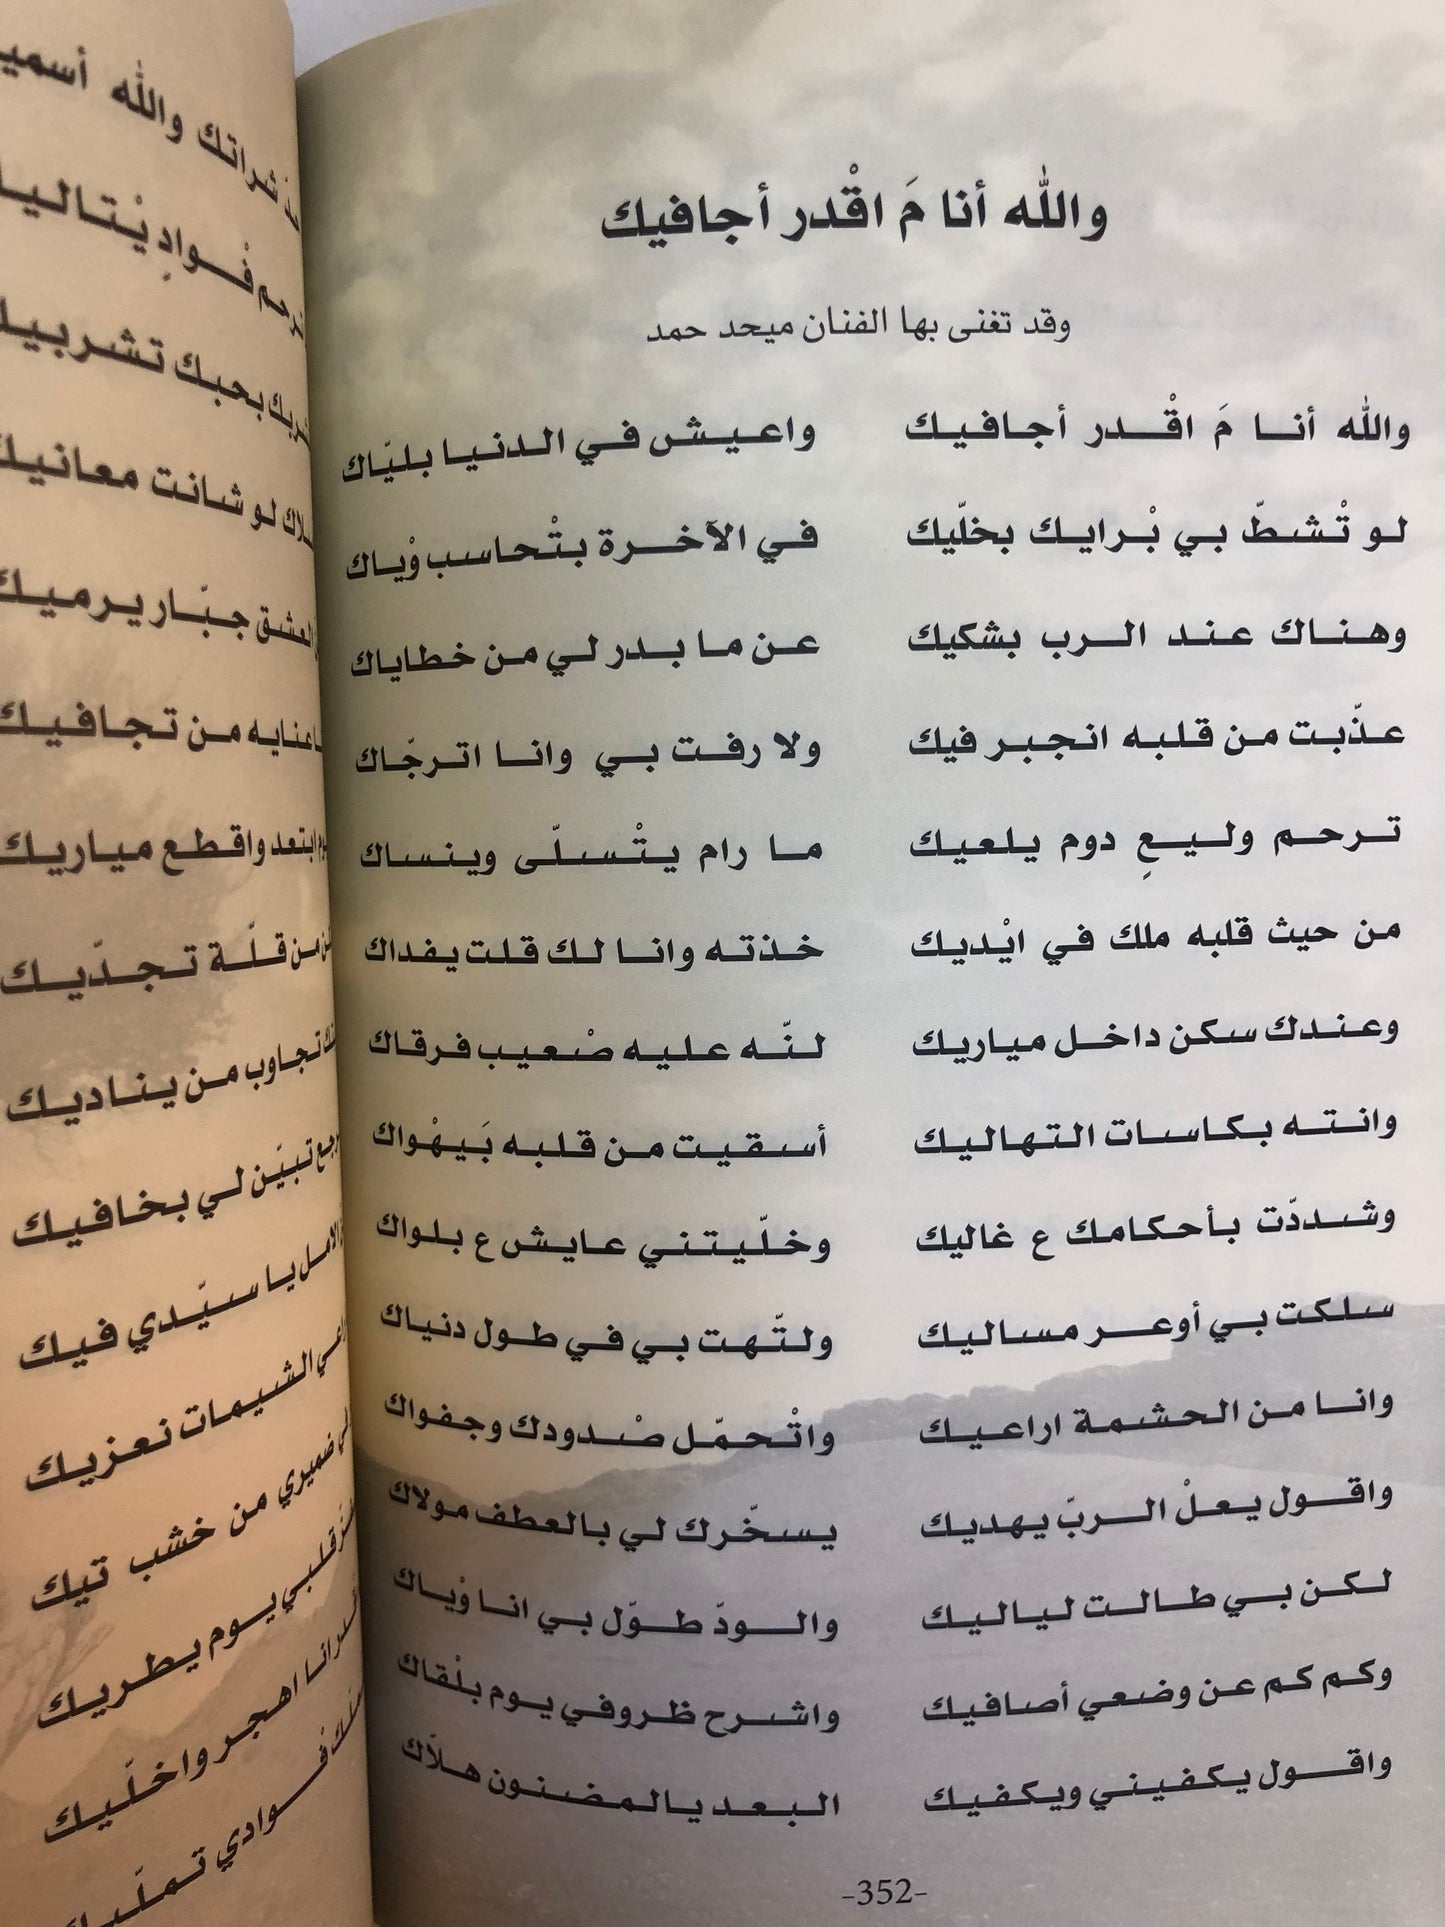 والله أنا مَ اقْدر أجافيك
وقد تغنى بها الفنان ميحد حمد
والله أنا مَ اقْدر أجافيك واعيش في الدنيا بليّاك
لو تْشطّ بي بْرايك بخلّيك في الآخرة بتْحاسب وْياك
وهناك عند الرب بشكيك عن ما بدر لي من خطاياك
عذّبت من قلبه انجبر فيك ولا رفت بي وانا اترجّاك
ترحم وليعٍ دوم يلعيك ما رام يتْسلّى وينساك
من حيث قلبه ملك في ايْديك خذته وانا لك قلت يفداك
وعندك سكن داخل مياريك لنّه عليه صْعيب فرقاك
وانته بكاسات التهاليك أسقيت من قلبه بَيهْواك
وشددّت بأحكامك ع غاليك وخلّيتني عايش ع بلواك
سلكت بي أوعر مساليك ولتّهت بي في طول دنياك
وانا من الحشمة اراعيك واتْحمّل صْدودك وجفواك
واقول يعلْ الربّ يهديك يسخّرك لي بالعطف مولاك
لكن بي طالت لياليك والودّ طوّل بي انا وْياك
وكم كم عن وضعي أصافيك واشرح ظروفي يوم بلْقاك
واقول يكفيني ويكفيك البعد يالمضنون هلّاك
-352-
شراتك والله
فْوادٍ يْتاليك
بحبك تشربيك
لو شانت معانيك
العشق جبّار يرميك
من تجافيك
ابتعد واقطع مياريك
من قلّة تجدّيك
تجاوب من يناديك
تبيّن لي بخافيك
الامل يا سيّدي فيك
الشيمات نعزيك
ضميري من خشب تيك
قلبي يوم يطريك
انا اهجر واخلّيك
فْوادي